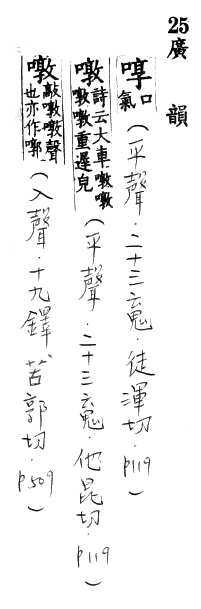 25廣韻
啍口氣(平聲.二十三魂.徒渾切.P119)
噋詩云大車噋噋噋噋重遲皃(平聲.二十三魂.他昆切.P119)
噋敲噋噋聲也亦作𡃀(入聲.十九鐸.苦郭切.P509)